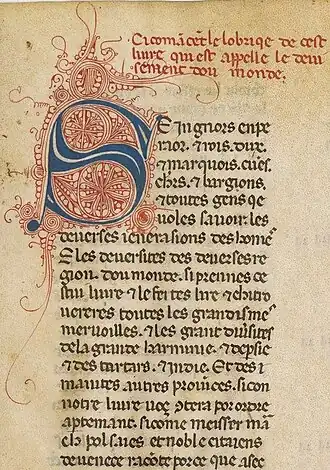 Ci comāce le lobrique de cest
livre qui est appelle le devi
sement dou monde.
Seingnors enpe
raor. & rois. dux.
& marquois. cuēs.
chrs. & bargions.
& toutes gens qe
uoles sauoir. les
deuerses ienerasions des home
E les deuersites des deuerses re
gion. dou monde. si prennes ce
stui liure & le feites lire & chi tro
ueres toutes les grandismes
meruoilles. & les grant diuersites
de la grande harminie. & de psie
& des tartars. & indie. Et des
maintes autres prouices. si con
notre liure uos contera por ordre
aptemant. si come meisser ma
pol saies et noble citaiens
de uenece raconte porce que a sec